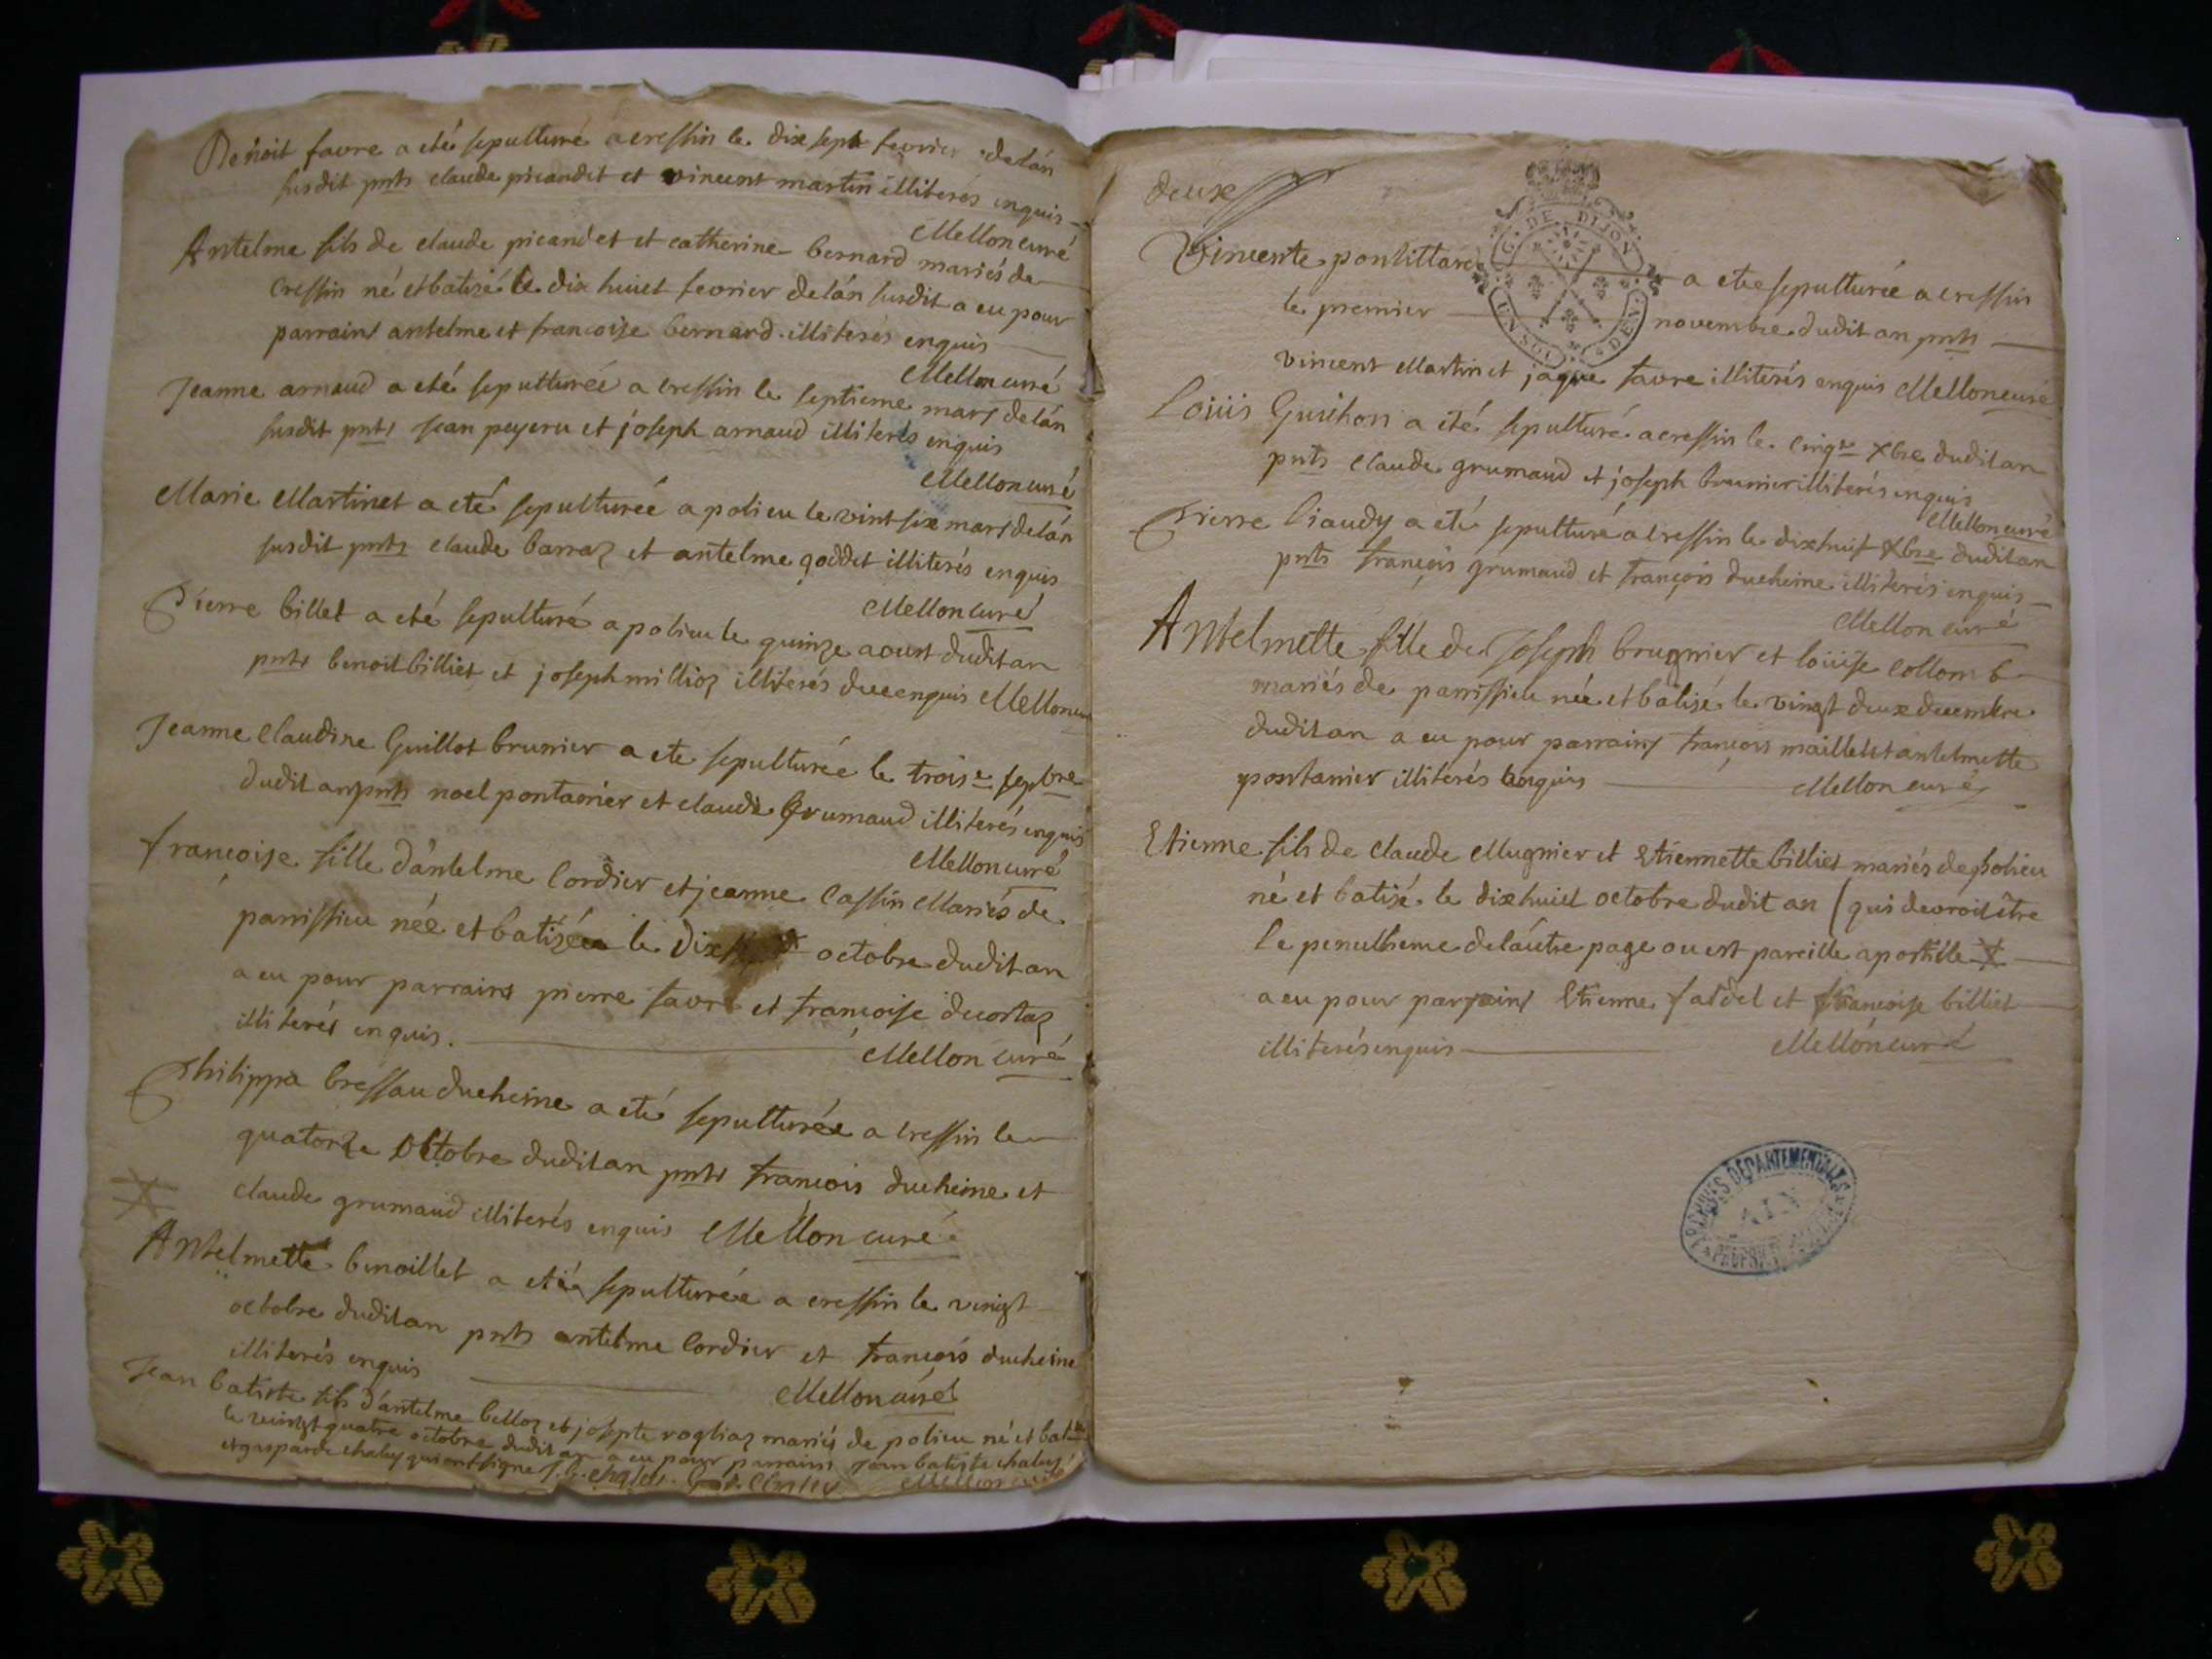 Benoit favre a eté sepulturé a cressin le dix sept fevrier delán
susdit pnts claude picandet et vincent martin illiterés enquis
Mellon curé
Antelme fils de claude picandet et catherine bernard mariés de
Cressin né et batisé le dix huict fevrier delán susdit a eu pour
parrains antelme et francoise bernard illiterés enquis
Mellon curé
Jeanne arnaud a eté sepulturée a cressin le septieme mars delán
susdit pnts Jean peyeru et joseph arnaud illiterés enquis
Mellon curé
Marie Martinet a eté sepulturée a polieu le vint six mars delán
susdit pnts claude barraz et antelme goddet illiterés enquis
Mellon curé
Pierre billet a eté sepulturé a polieu le quinze aoust dudit an
pnts benoit billiet et joseph millioz illiterés enquis Mellon
Jeanne Claudine Guillot brunier a ete sepulturée le troise sepbre
dudit an pnts noel pontanier et claude Grumaud illiterés enquis
Mellon curé
francoise fille dántelme Cordier et jeanne Cassin Mariés de
parrissieu née et batisée le dix octobre dudit an
a eu pour parrains pierre favre et francoise decortaz
illiterés enquis.
Mellon curé
Philippa bressau ducheine a eté sepulturée a cressin le
quatorze Octobre dudit an pnts francois ducheine et
claude grumaud illiterés enquis Mellon curé
Antelmette benoillet a eté sepulturée a cressin le vingt
octobre dudit an pnts antelme Cordier et francois ducheine
illiterés enquis
Mellon curé
Jean batiste fils dántelme belloz et josepte rogliaz mariés de polieu né et bat
le veingt quatre octobre dudit an a eu pour parrains jean batiste chaley
et gasparde chaley qui ont signe J. B. chaley
Mellon curé
deux
G. DE DIJON
UN SOL
DEN.
Vincente pontittard a ete sepulturée a cressin
le premier novembre dudit an pnts
vincent Martin et jaque favre illiterés enquis Mellon curé
Loüis Guithon a eté sepulturé a cressin le cinqe Xbre dudit an
pnts Claude grumaud et joseph brunier illiterés enquis
Mellon curé
Pierre Ciaudy a eté sepulturé a cressin le dix huit Xbre dudit an
pnts françois grumaud et françois ducheine illiterés enquis
Mellon curé
Antelmette fille de Joseph brugnier et loüise Collomb
mariés de parrissieu née et batisé le vingt deux decembre
dudit an a eu pour parrains françois maillet et antelmette
pontanier illiterés enquis
Mellon curé
Etienne fils de Claude Mugnier et Etiennette billiet mariés de polieu
né et batisé le dix huict octobre dudit an (qui devroit être
le penultieme deláutre page ou est pareille apostille X
a eu pour parrains Etienne fardel et francoise billiet
illiterés enquis
Mellon curé
ARCHIVES DEPARTEMENTALES
AIN